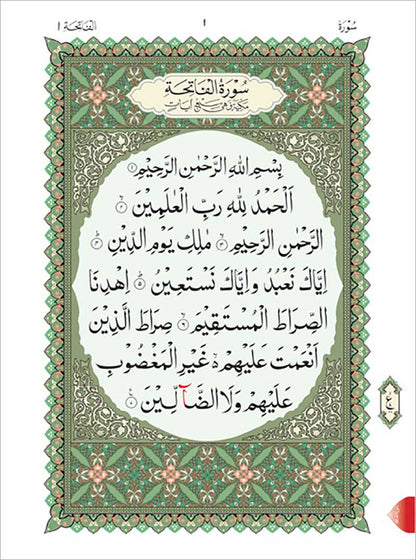 سُوْرَة
١
الفَاتِحَةِ ١
سُوْرَةُ الْفَاتِحَةِ
مَكِّيَّةٌ وَهِيَ سَبْعُ اٰيَاتٍ
بِسْمِ اللهِ الرَّحْمٰنِ الرَّحِيْمِ ۝١
اَلْحَمْدُ لِلّٰهِ رَبِّ الْعٰلَمِيْنَ ۝٢
الرَّحْمٰنِ الرَّحِيْمِ ۝٣ مٰلِكِ يَوْمِ الدِّيْنِ ۝٤
اِيَّاكَ نَعْبُدُ وَاِيَّاكَ نَسْتَعِيْنُ ۝٥ اِهْدِنَا
الصِّرَاطَ الْمُسْتَقِيْمَ ۝٦ صِرَاطَ الَّذِيْنَ
اَنْعَمْتَ عَلَيْهِمْ غَيْرِ الْمَغْضُوْبِ
عَلَيْهِمْ وَلَا الضَّآلِّيْنَ ۝٧